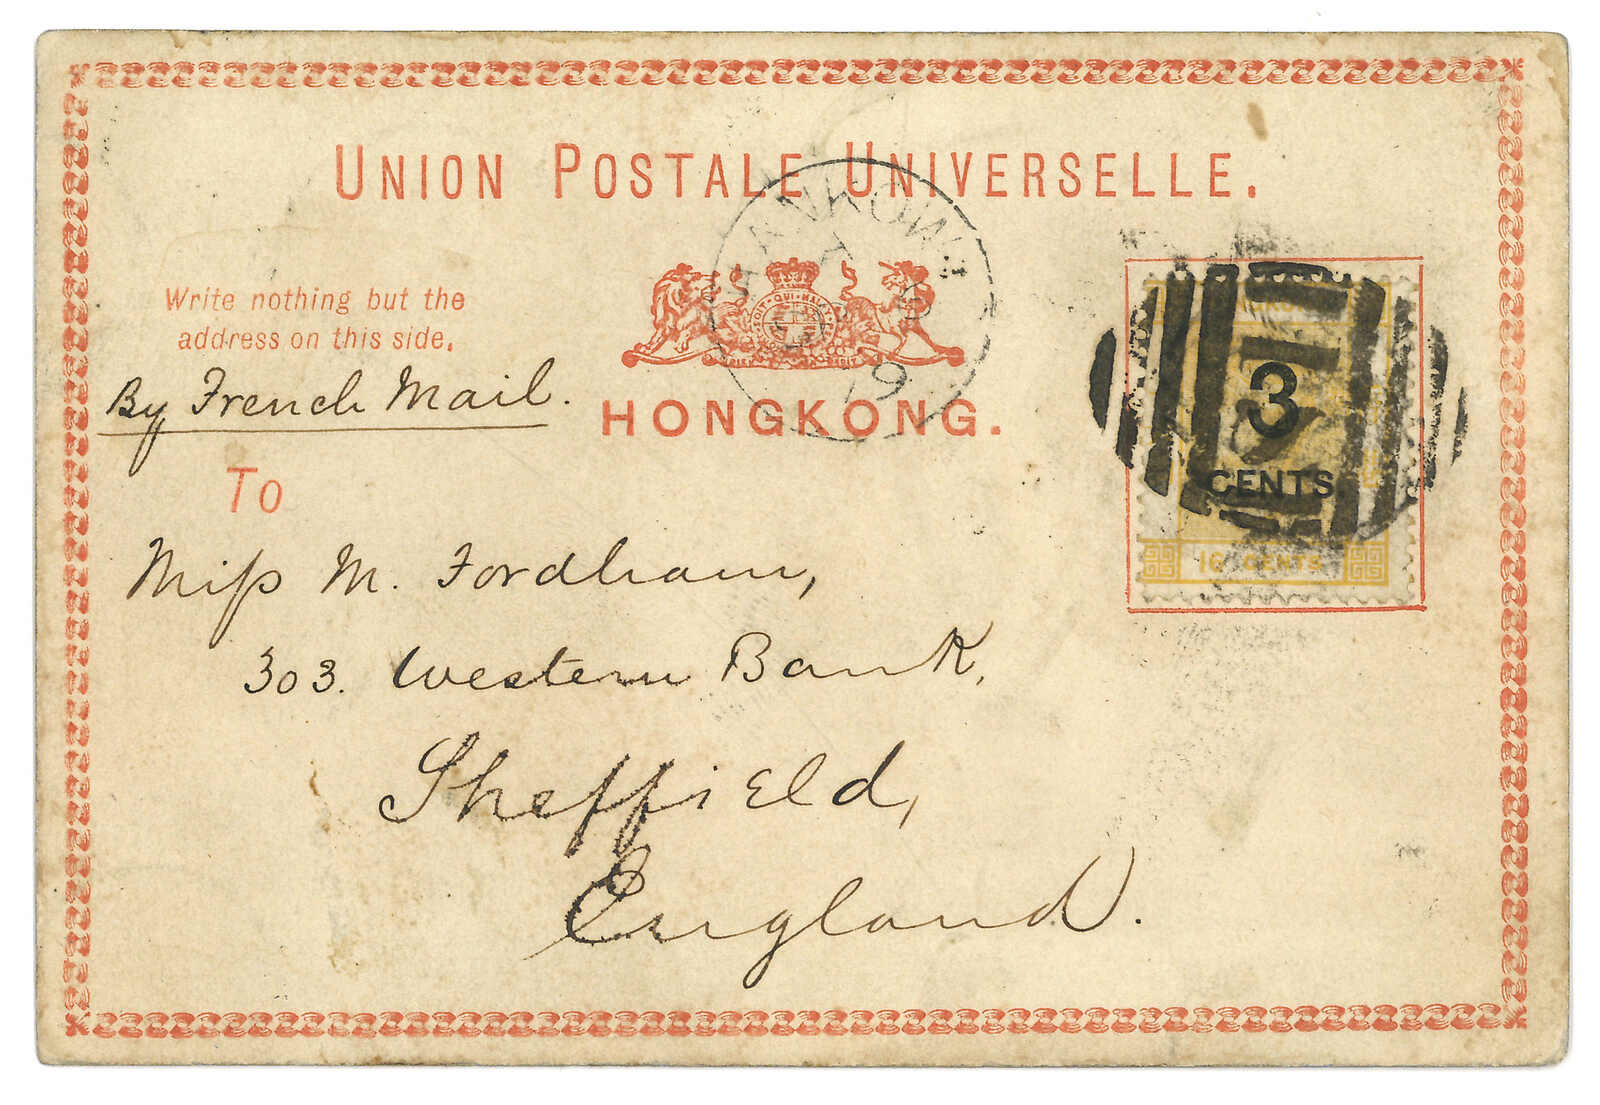 UNION POSTALE UNIVERSELLE.
HANKOW
79
Write nothing but the
address on this side.
By French Mail.
HONGKONG.
3
CENTS
16 CENTS
To
Miss M. Fordham,
303. Western Bank,
Sheffield,
England.